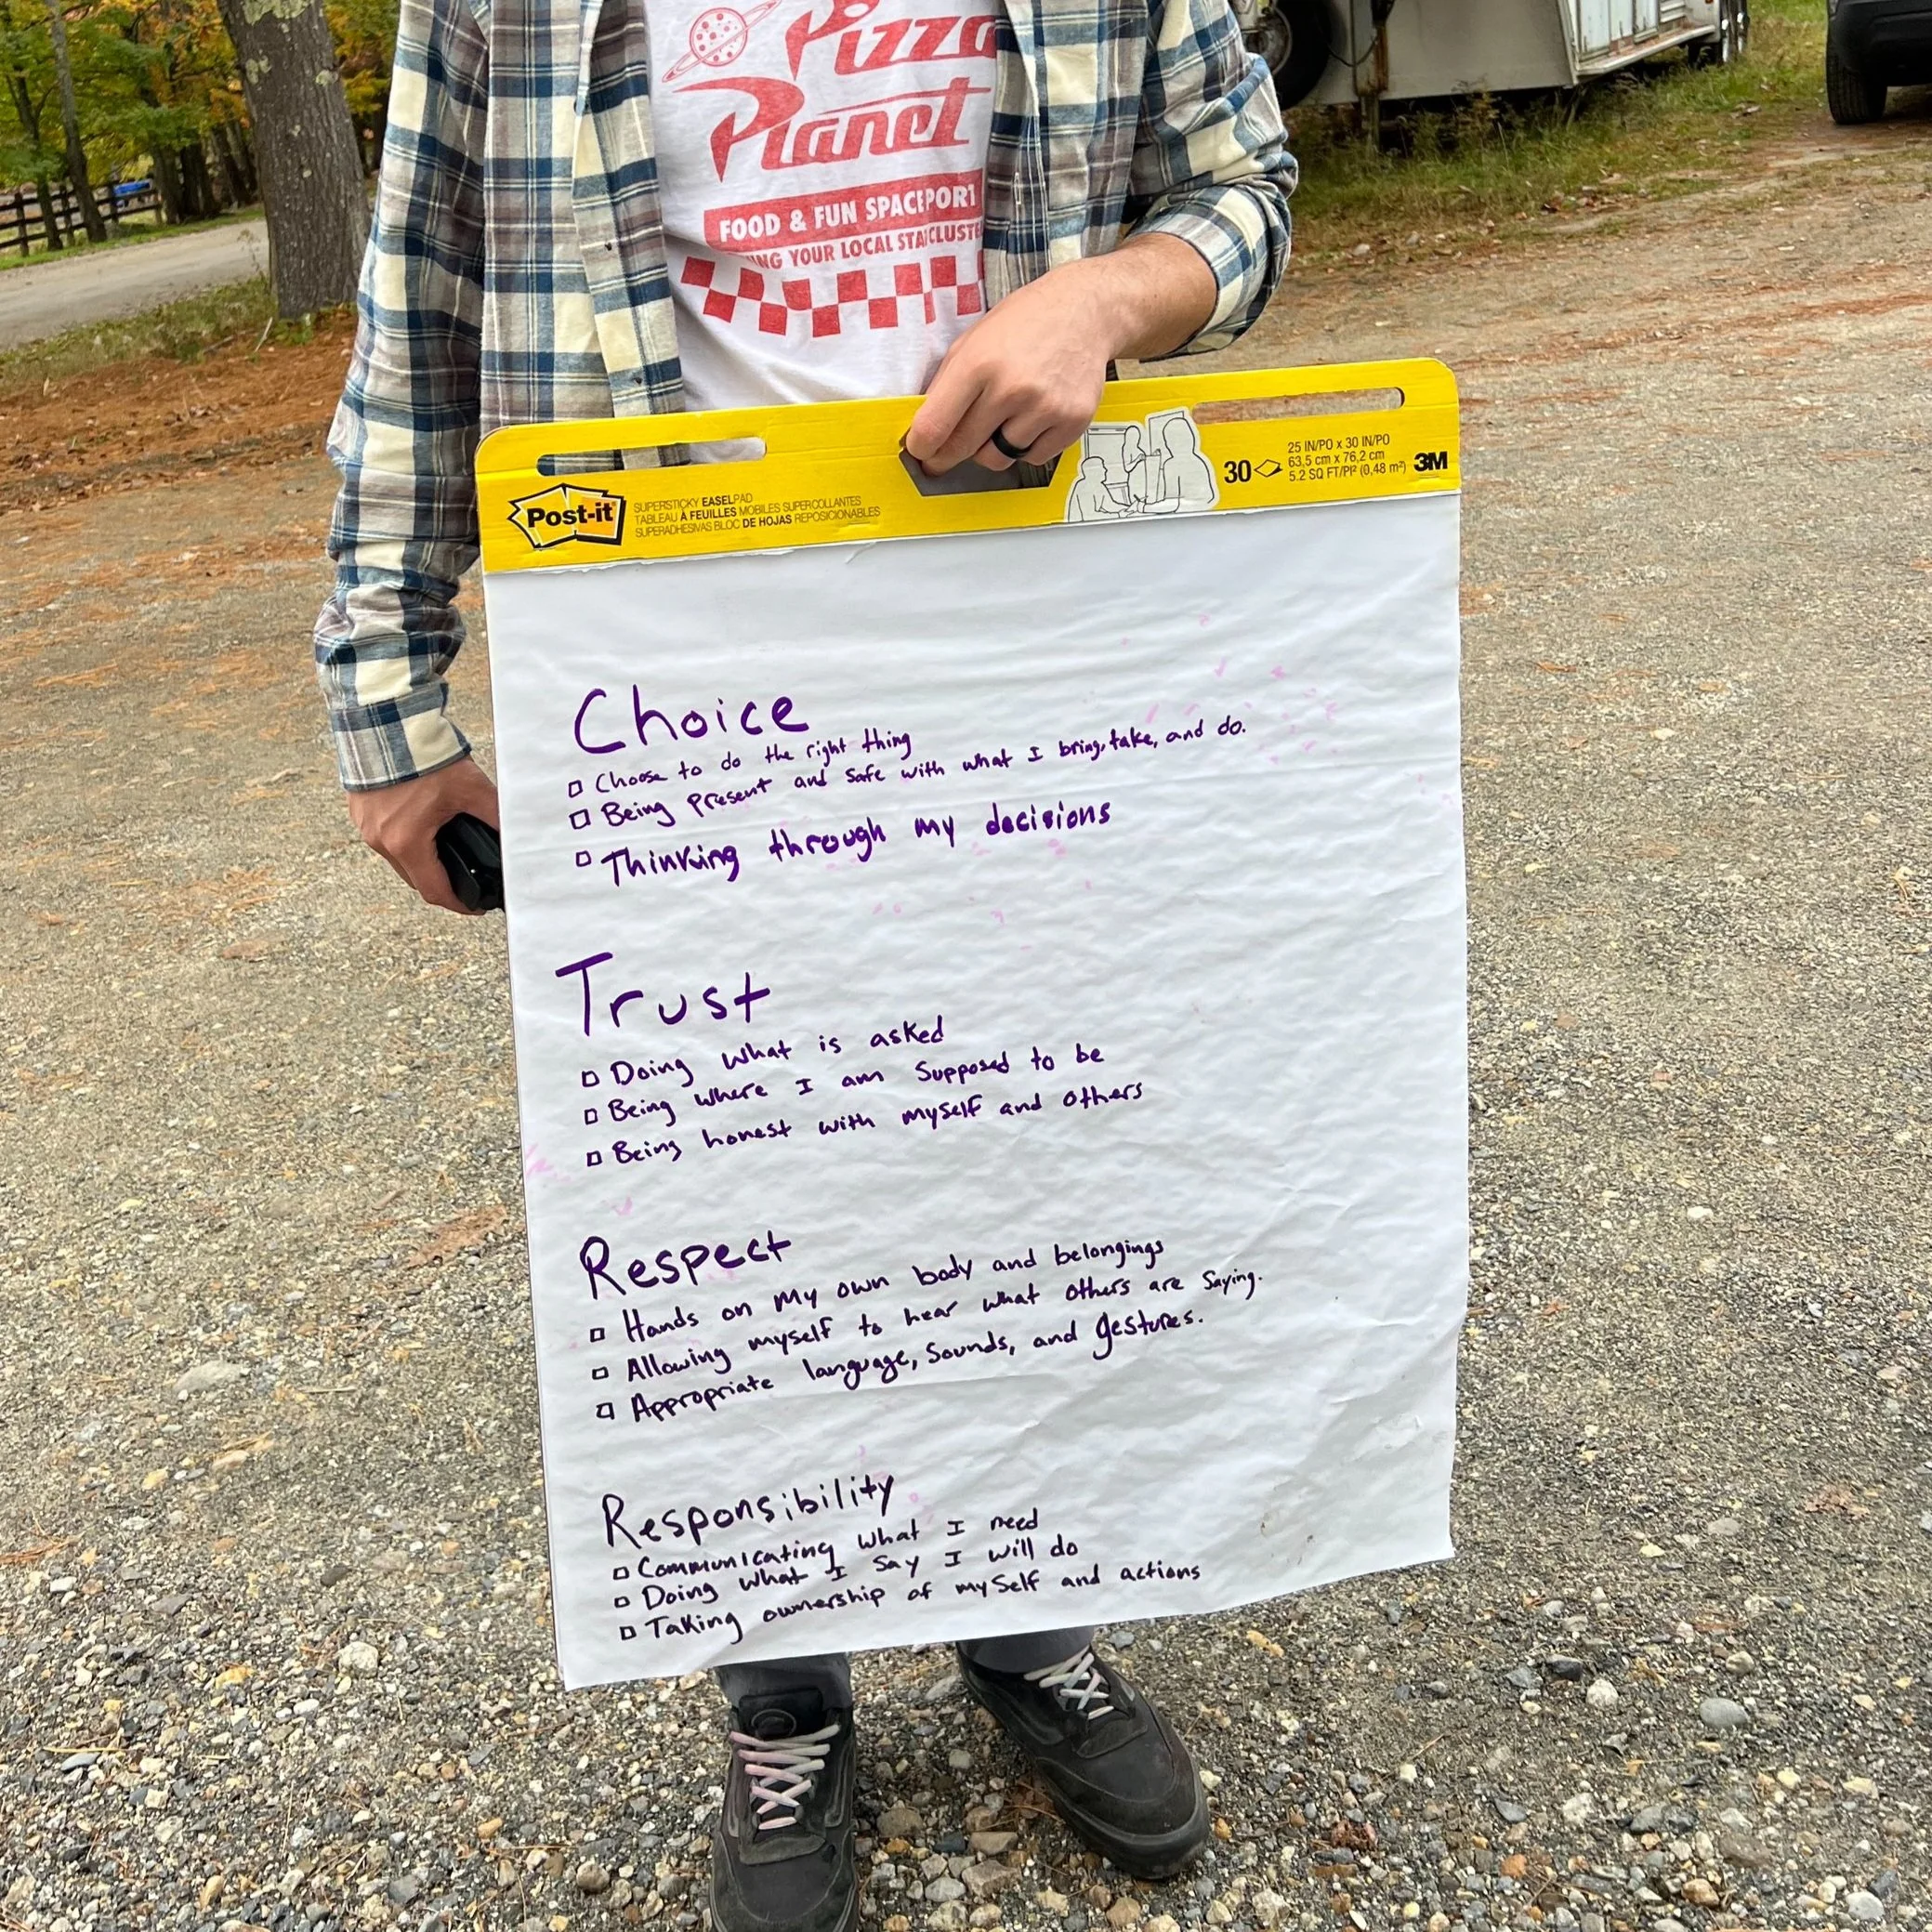 Pizza
Planet
FOOD & FUN SPACEPORT
YOUR LOCAL STAR CLUSTE
Post-it
SUPERSTICKY EASELPAD
TABLEAU À FEUILLES MOBILES SUPERCOLLANTES
SUPERADHESIVAS BLOC DE HOJAS REPOSICIONABLES
30
25 IN/PO x 30 IN/PO
63,5 cm x 76,2 cm
5.2 SQ FT/PI² (0,48 m²)
3M
Choice
Choose to do the right thing
Being Present and Safe with what I bring, take, and do.
Thinking through my decisions
Trust
Doing what is asked
Being where I am Supposed to be
Being honest with myself and others
Respect
Hands on my own body and belongings
Allowing myself to hear what others are saying.
Appropriate language, Sounds, and gestures.
Responsibility
Communicating what I need
Doing what I say I will do
Taking ownership of myself and actions